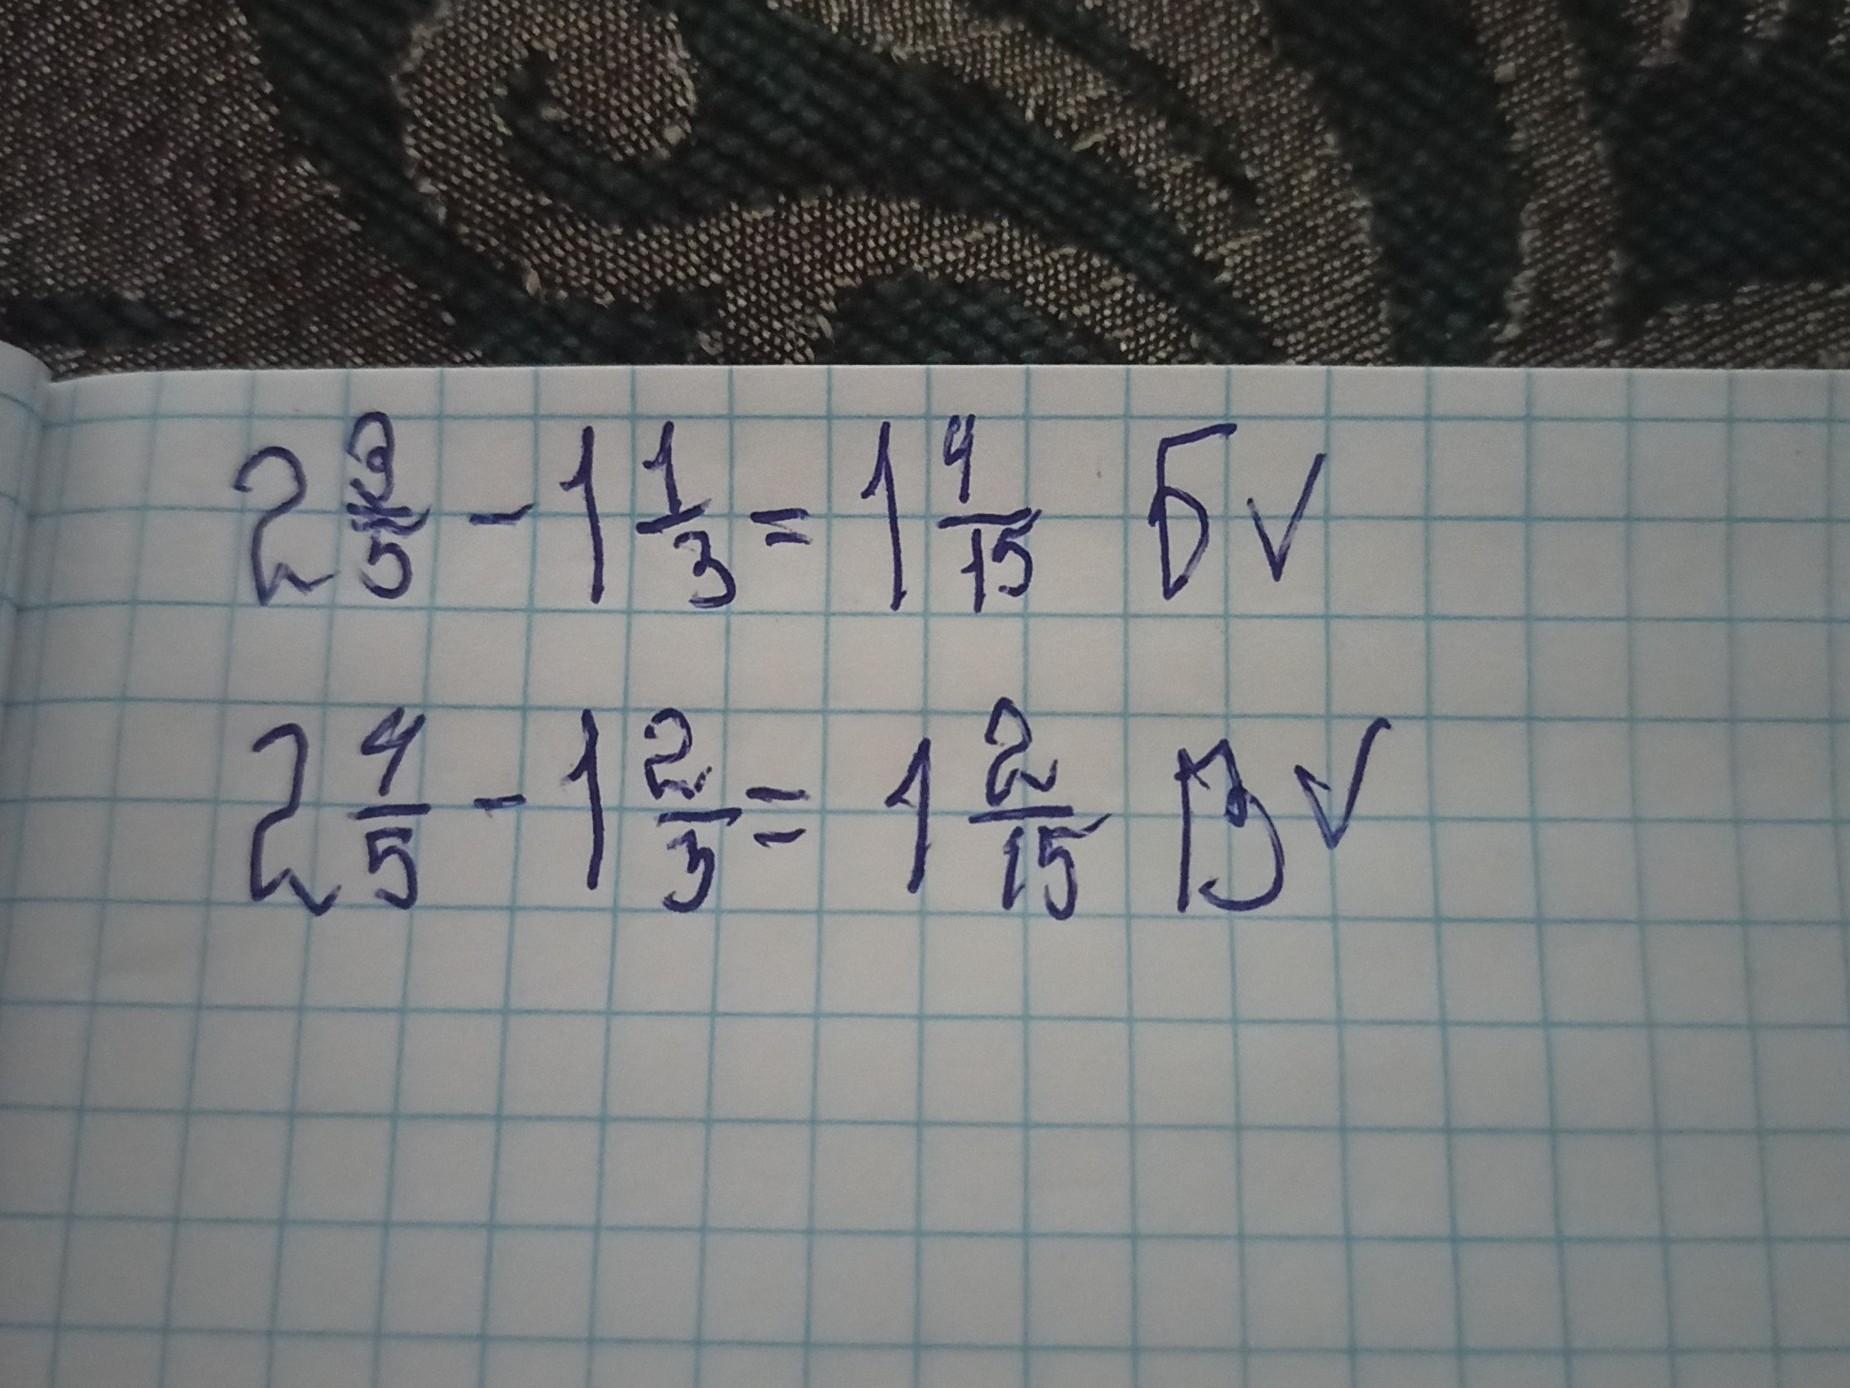 2 3/5 - 1 1/3 = 1 4/15 Б √
2 4/5 - 1 2/3 = 1 2/15 √